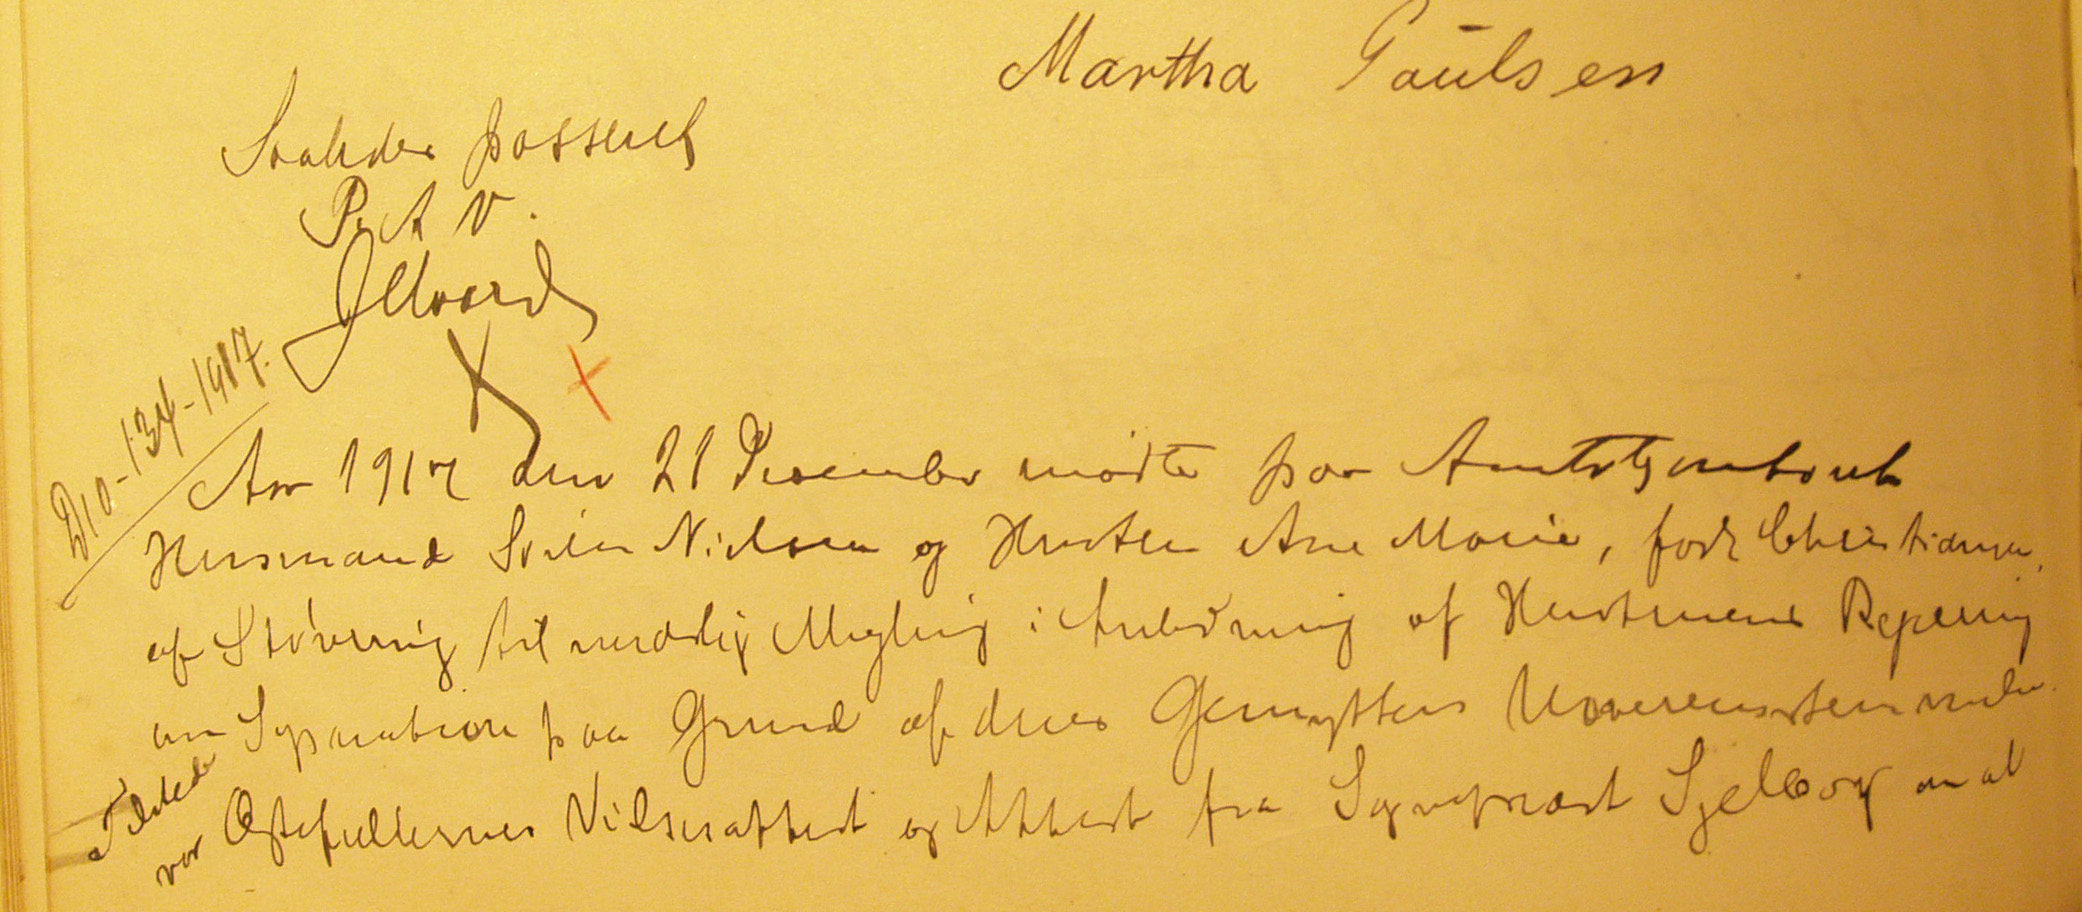 Martha Paulsen
Saaledes passeret
P. A V.
D10-134-1917.
Aar 1917 den 21 December mødte paa Amtstuekontoret
Husmand Søren Nielsen og Hustru Ane Marie, født Christiansen,
af Støvring til verdslig Mægling i Anledning af Hustruens Begæring
om Separation paa Grund af deres Gemytters Uoverensstemmelse.
Tilstede
var Ægtefællernes Vielsesattest og Attest fra Sognepræst Sjelborg om at